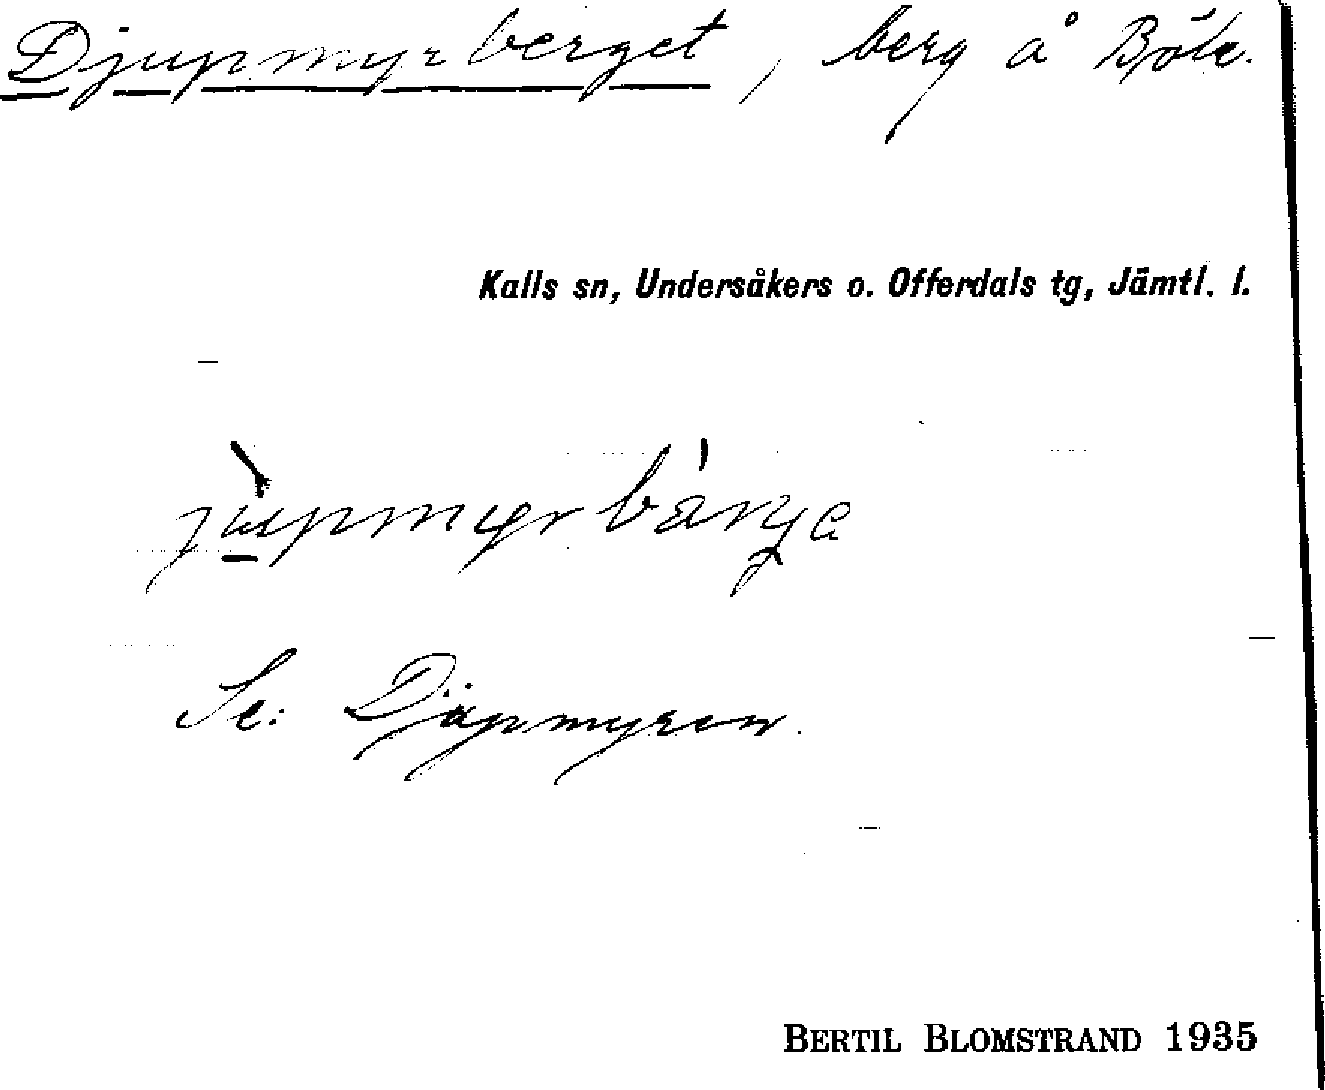 Djupmyrberget, berg å Böle.
Kalls sn, Undersåkers o. Offerdals tg, Jämtl. l.
Se: Djüpmyren.
BERTIL BLOMSTRAND 1935